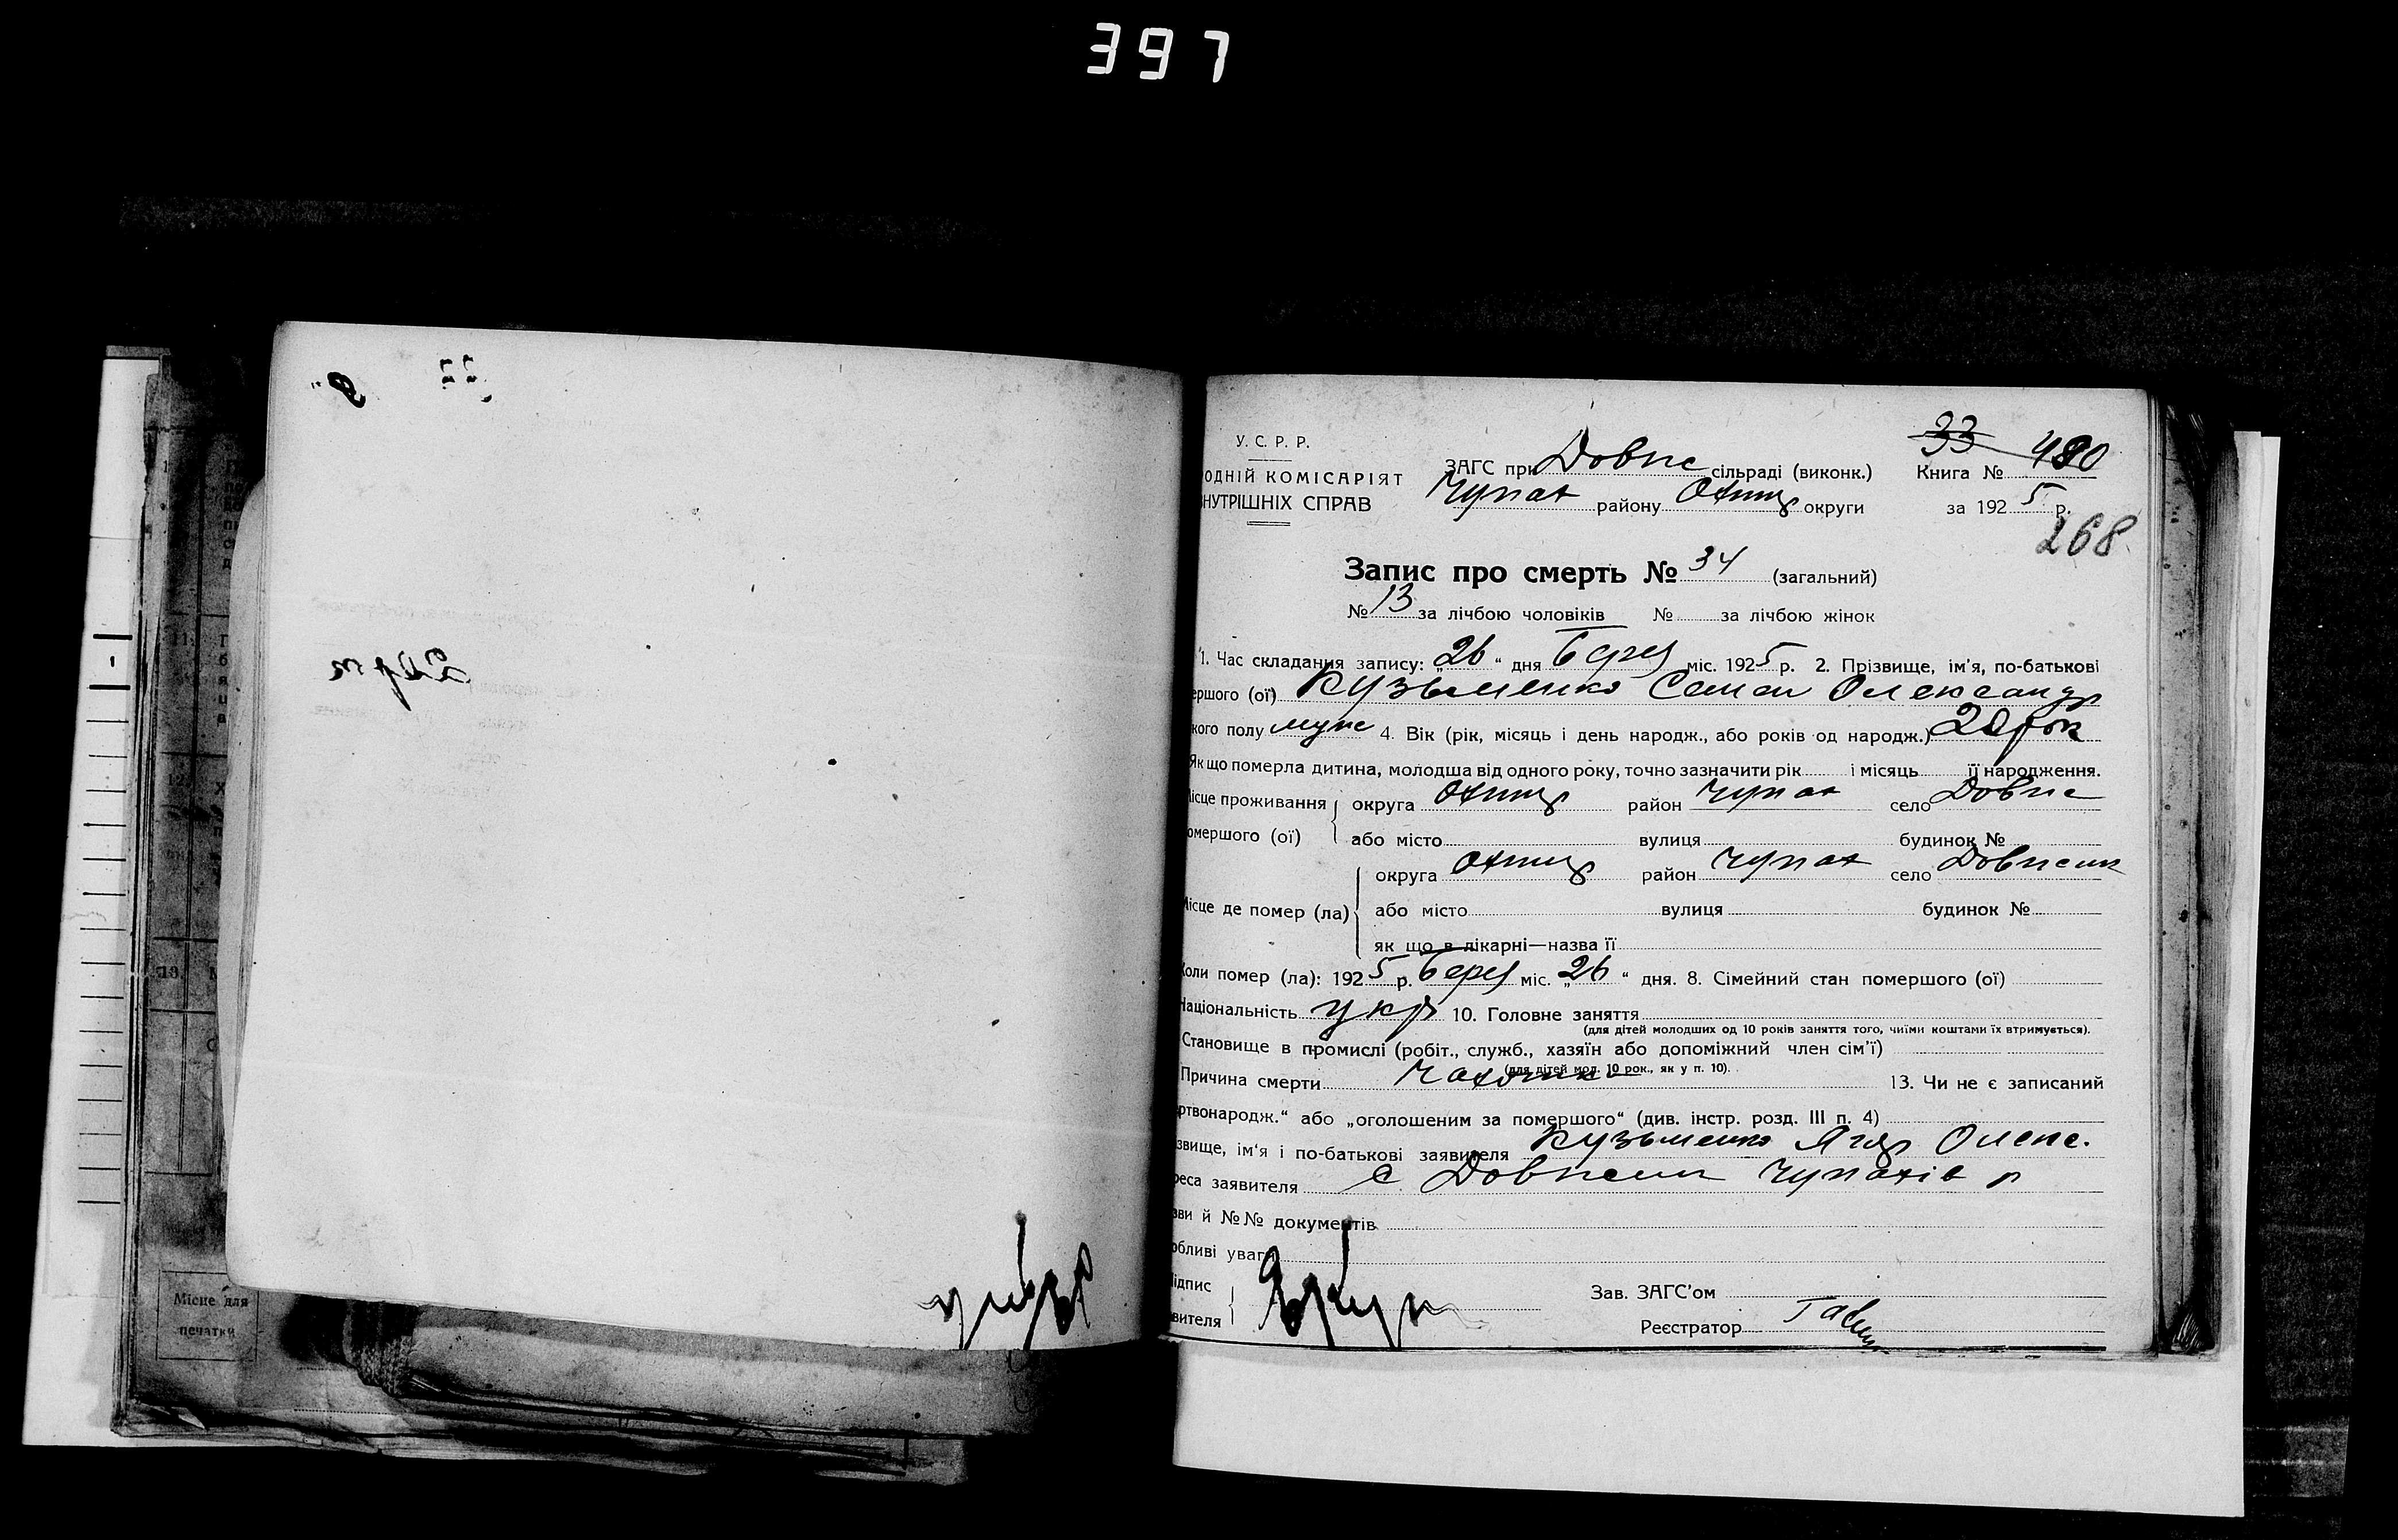 397
У. С. Р. Р.
ОДНІЙ КОМІСАРІЯТ
НУТРІШНІХ СПРАВ
ЗАГС при Довпс сільраді (виконк.)
Чупах району Охтир округи
33 480
Книга №
за 1925 р.
268
Запис про смерть № 34 (загальний)
№ 13 за лічбою чоловіків № за лічбою жінок
1. Час складання запису: „26“ дня Берез міс. 1925 р. 2. Прізвище, ім'я, по-батькові
ершого (ої) Кузьменко Семен Олександр
кого полу муж 4. Вік (рік, місяць і день народж., або років од народж.) 20 рок
Як що померла дитина, молодша від одного року, точно зазначити рік і місяць її народження.
ісце проживання округа Охтир район Чупах село Довпс
омершого (ої) або місто вулиця будинок №
округа Охтир район Чупах село
ісце де помер (ла) або місто вулиця будинок №
як що в лікарні—назва її
оли помер (ла): 1925 р. Берез міс. „26“ дня. 8. Сімейний стан помершого (ої)
Національність укр 10. Головне заняття
(для дітей молодших од 10 років заняття того, чиїми коштами їх втримується).
Становище в промислі (робіт., служб., хазяїн або допоміжний член сім'ї)
(для дітей мол. 10 рок., як у п. 10).
Причина смерти Чахотка 13. Чи не є записаний
ртвонародж.“ або „оголошеним за помершого“ (див. інстр. розд. III п. 4)
звище, ім'я і по-батькові заявителя Кузьменко
реса заявителя с Чупахів р
зви й №№ документів
обливі уваги
ідпис
вителя
Зав. ЗАГС'ом
Реєстратор
Місце для
печатки